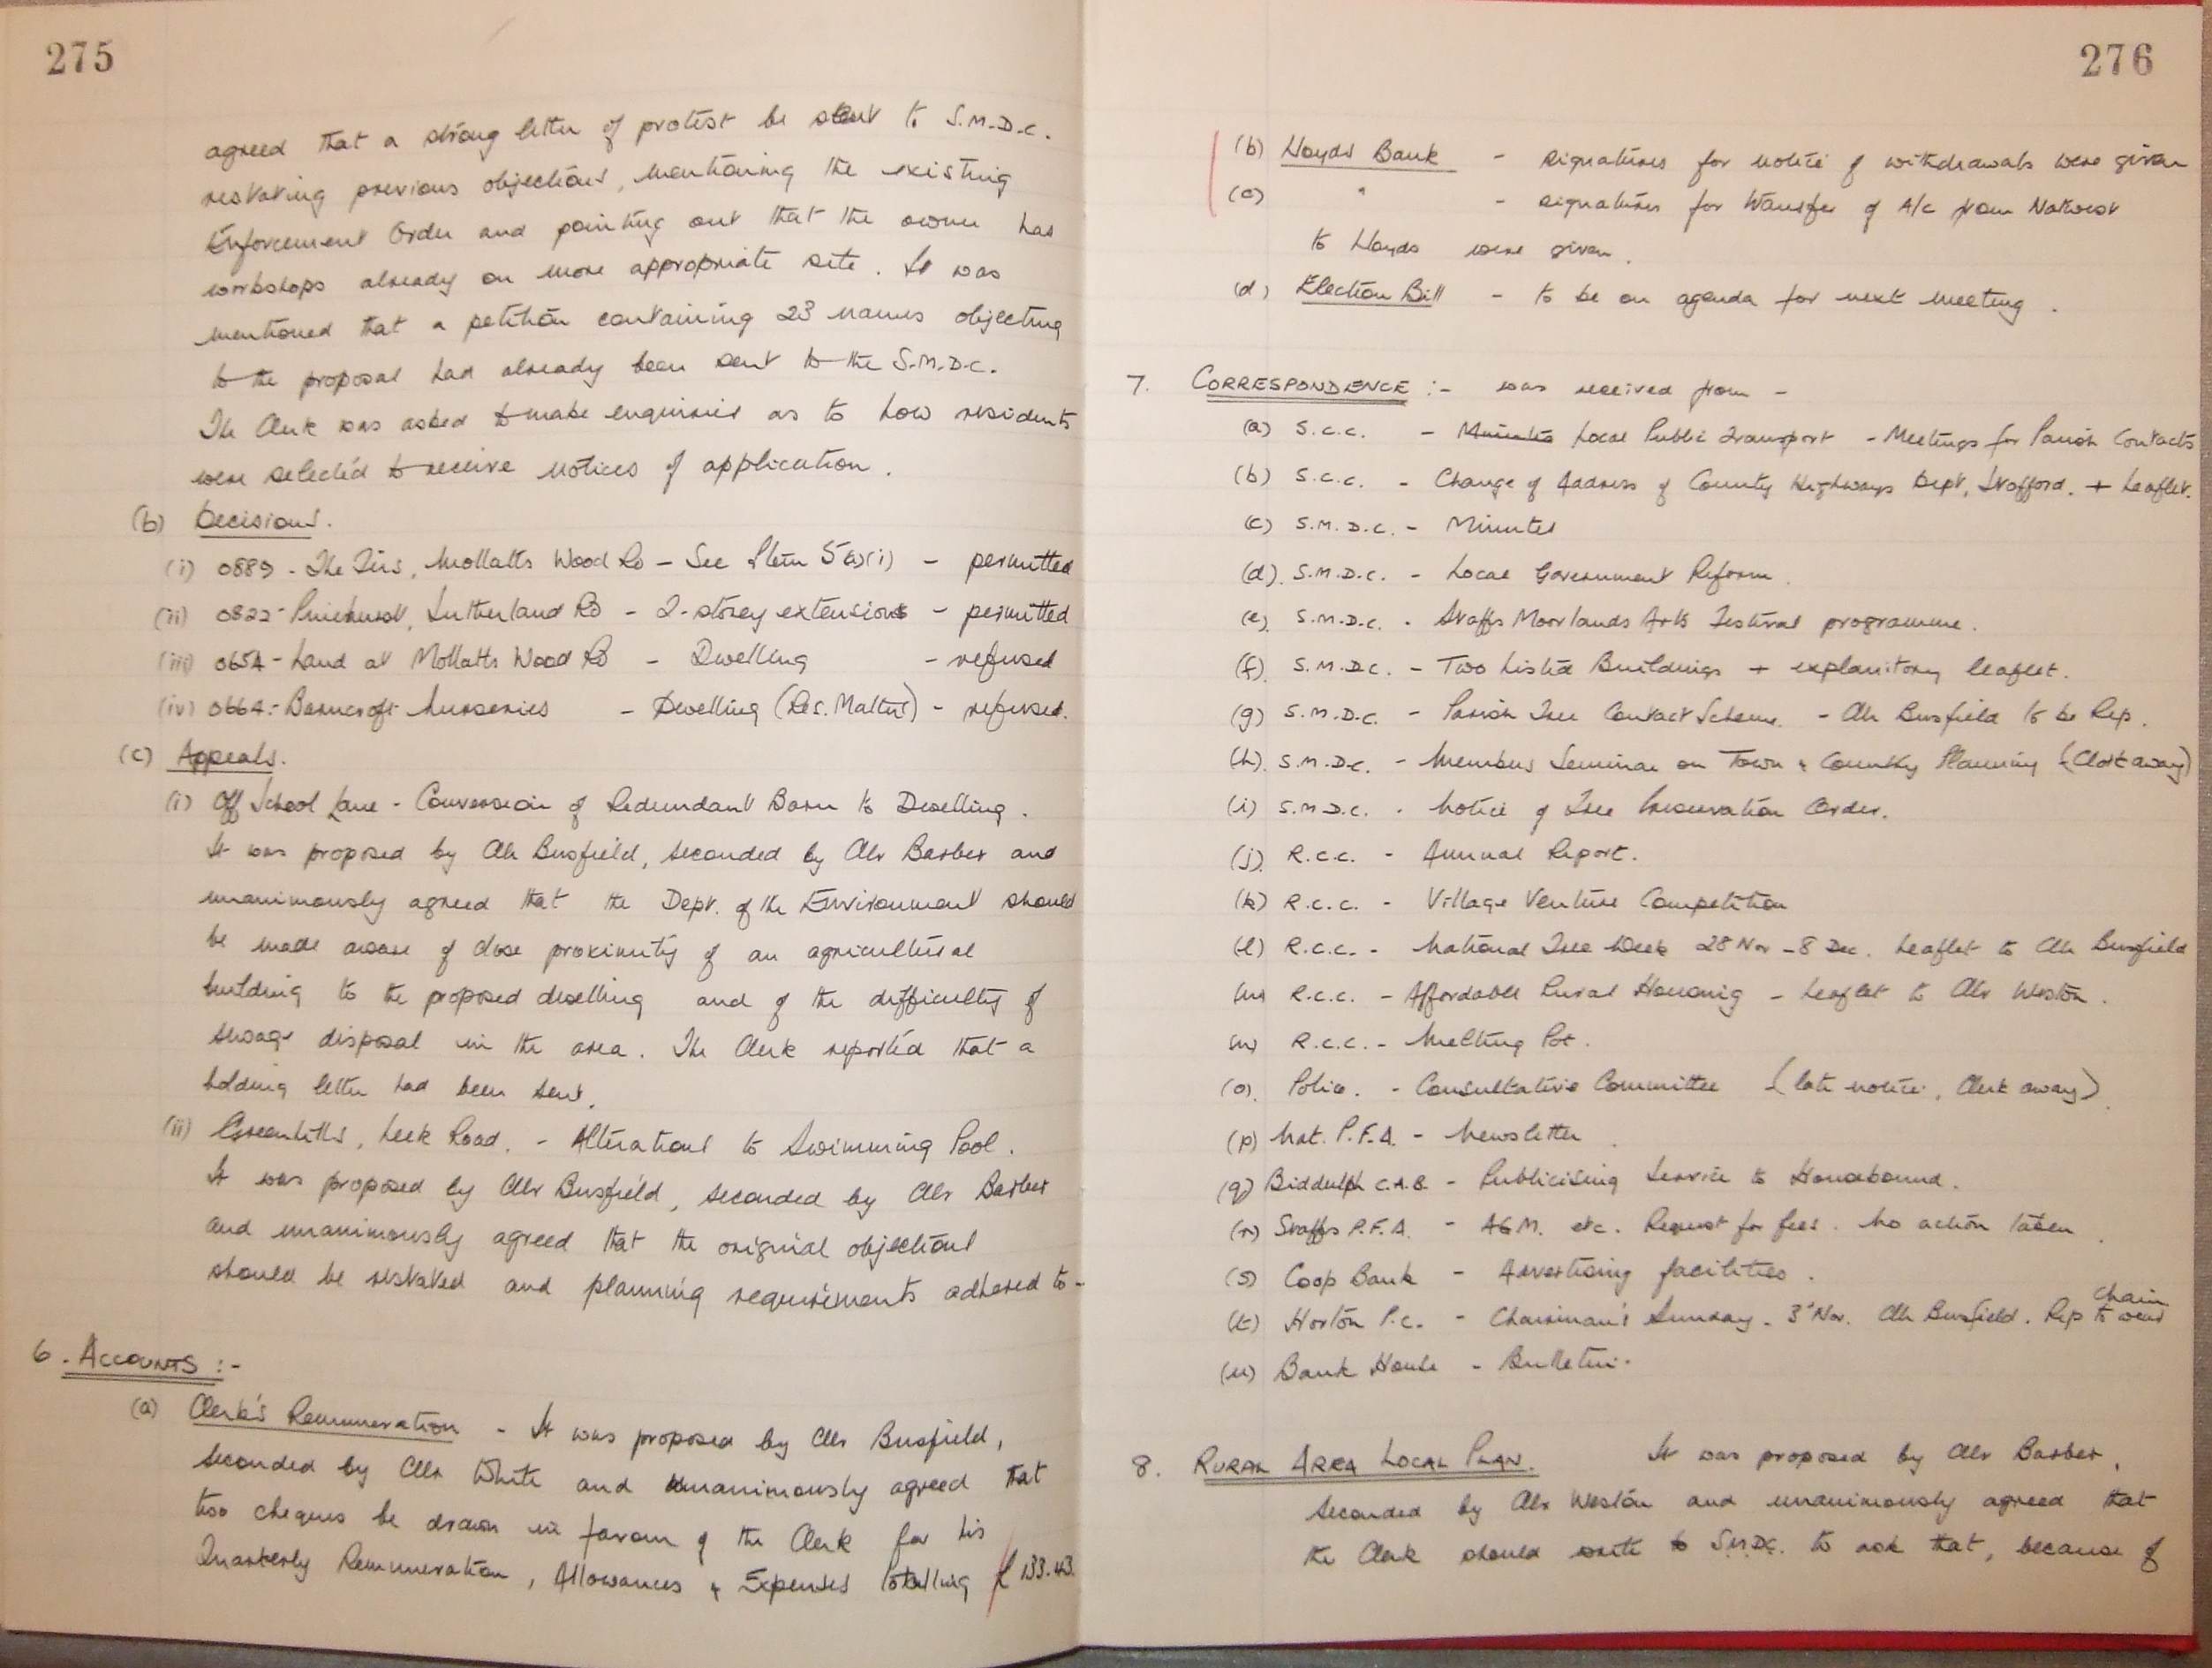 275
agreed that a strong letter of protest be sent to S.M.D.C.
restating previous objections, mentioning the existing
Enforcement Order and pointing out that the owner has
workshops already on more appropriate site. It was
mentioned that a petition containing 23 names objecting
to the proposal had already been sent to the S.M.D.C.
The Clerk was asked to make enquiries as to how residents
were selected to receive notices of application.
(b) Decisions.
(i) 0889 - The Firs, Mollatts Wood Rd - See Item 5(a)(i) - permitted
(ii) 0822 - Pinehurst, Sutherland Rd - 2-storey extension - permitted
(iii) 0654 - Land at Mollatts Wood Rd - Dwelling - refused
(iv) 0664 - Barncroft Nurseries - Dwelling (Res. Matters) - refused.
(c) Appeals.
(i) Off School Lane - Conversion of Redundant Barn to Dwelling.
It was proposed by Cllr Busfield, seconded by Cllr Barber and
unanimously agreed that the Dept. of the Environment should
be made aware of close proximity of an agricultural
building to the proposed dwelling and of the difficulty of
sewage disposal in the area. The Clerk reported that a
holding letter had been sent.
(ii) Greenhills, Leek Road. - Alterations to Swimming Pool.
It was proposed by Cllr Busfield, seconded by Cllr Barber
and unanimously agreed that the original objections
should be restated and planning requirements adhered to -
6. ACCOUNTS :-
(a) Clerk's Remuneration - It was proposed by Cllr Busfield,
seconded by Cllr White and unanimously agreed that
two cheques be drawn in favour of the Clerk for his
Quarterly Remuneration, Allowances & Expenses totalling £133.43.
276
(b) Lloyds Bank - signatures for notice of withdrawals were given
(c) " - signatures for transfer of A/c from Natwest
to Lloyds were given.
(d) Election Bill - to be on agenda for next meeting.
7. CORRESPONDENCE :- was received from -
(a) S.C.C. - Minutes Local Public Transport - Meetings for Parish Contacts
(b) S.C.C. - Change of Address of County Highways Dept, Stafford. + Leaflet.
(c) S.M.D.C. - Minutes
(d). S.M.D.C. - Local Government Reform.
(e). S.M.D.C. - Staffs Moorlands Arts Festival programme.
(f). S.M.D.C. - Two Listed Buildings + explanitory leaflet.
(g) S.M.D.C. - Parish Tree Contact Scheme. - Cllr Busfield to be Rep.
(h). S.M.D.C. - Members Seminar on Town & Country Planning (Clerk away)
(i) S.M.D.C. - Notice of Tree Preservation Order.
(j). R.C.C. - Annual Report.
(k) R.C.C. - Village Venture Competition
(l) R.C.C. - National Tree Week 28 Nov - 8 Dec. Leaflet to Cllr Busfield
(m) R.C.C. - Affordable Rural Housing - Leaflet to Cllr Weston.
(n) R.C.C. - Melting Pot.
(o). Police. - Consultative Committee (late notice, Clerk away).
(p) Nat. P.F.A. - Newsletter.
(q) Biddulph C.A.B. - Publicising Service to Housebound.
(r) Staffs P.F.A. - AGM. etc. Request for fees. No action taken.
(s) Coop Bank - Advertising facilities.
(t) Horton P.C. - Chairman's Sunday. 3rd Nov. Cllr Busfield. Rep to wear chain
(u) Bank House - Bulletin.
8. RURAL AREA LOCAL PLAN. It was proposed by Cllr Barber,
seconded by Cllr Weston and unanimously agreed that
the Clerk should write to S.M.D.C. to ask that, because of